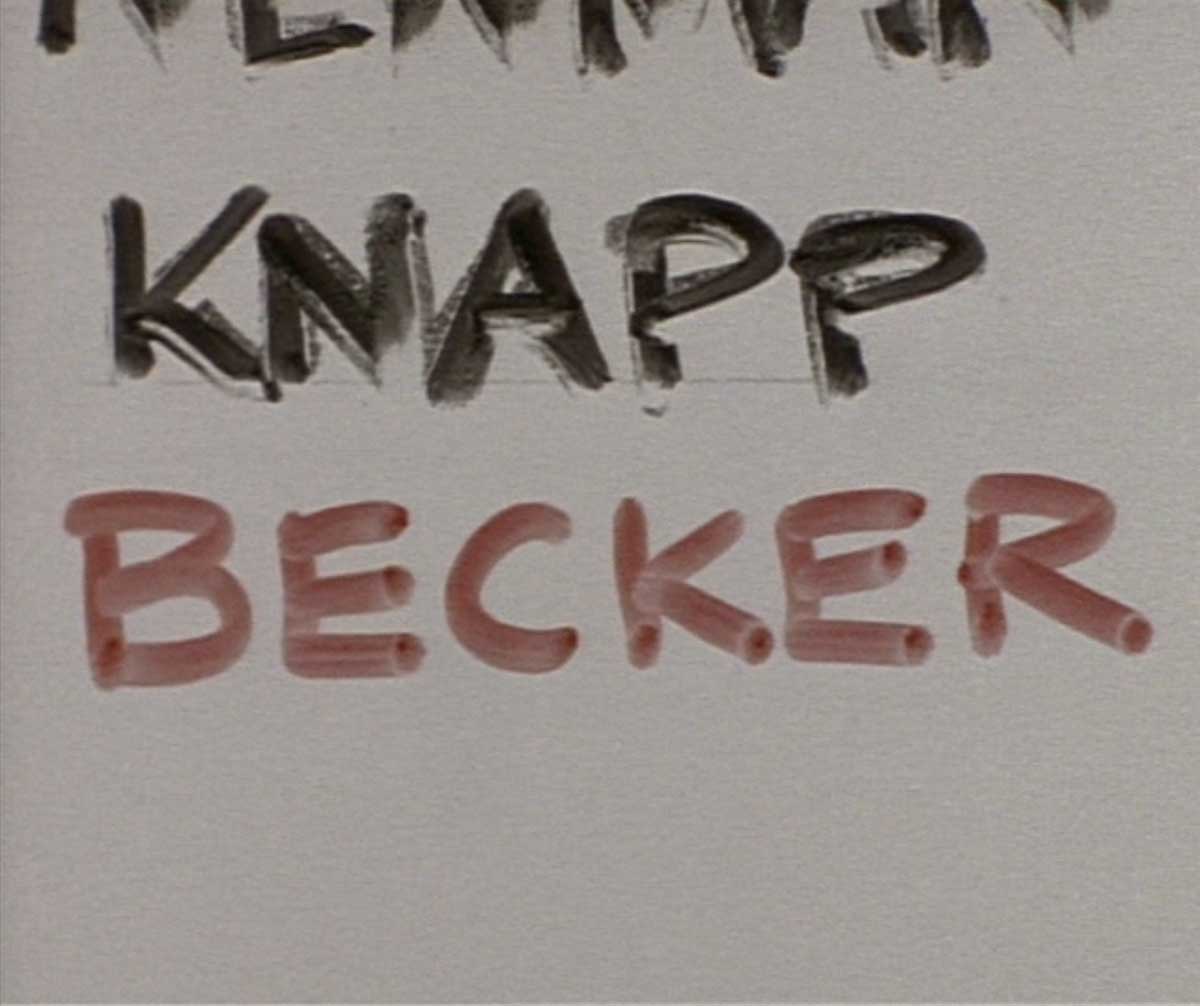 KNAPP
BECKER